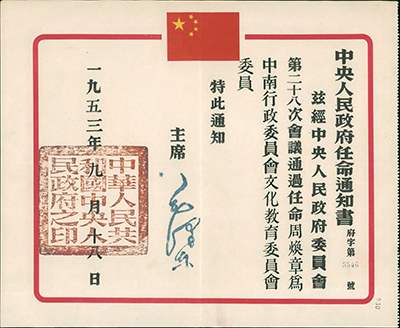 中央人民政府任命通知書
府字第5546號
茲經中央人民政府委員會
第二十八次會議通過任命周煥章爲
中南行政委員會文化教育委員會
委員
特此通知
主席
毛澤東
一九五三年九月十八日
中華人民共
和國中央人
民政府之印
730